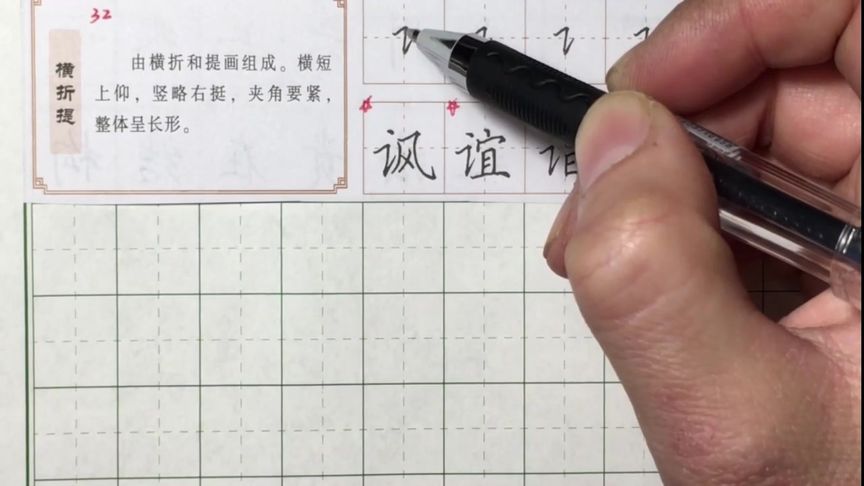 32
横折提
由横折和提画组成。横短
上仰，竖略右挺，夹角要紧，
整体呈长形。
讽 谊